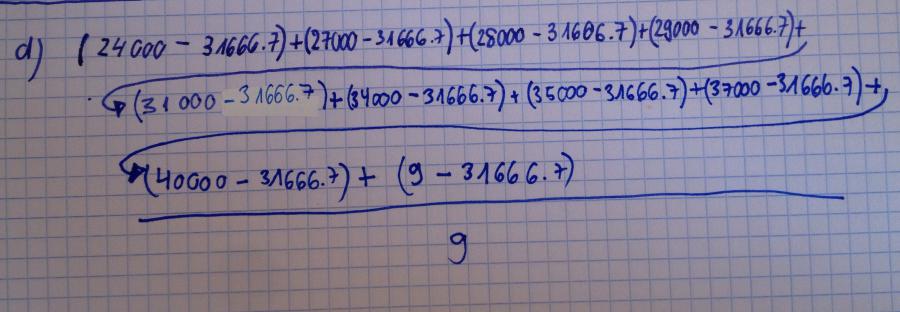 d) (24000 - 31666.7)+(27000 - 31666.7)+(28000 - 31666.7)+(29000 - 31666.7)+
(31000 - 31666.7)+(34000 - 31666.7)+(35000 - 31666.7)+(37000 - 31666.7)+
(40000 - 31666.7)+ (9 - 31666.7)
9